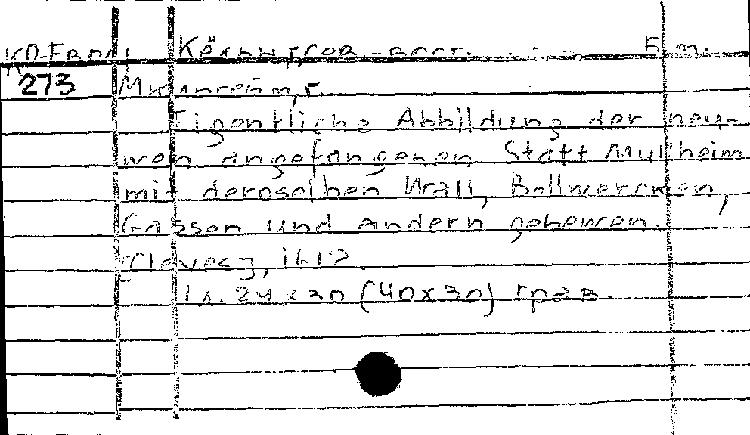 Б.м.
273 Мюльгейм, г.
Eigentliche Abbildung der neu-
wen angefangenen Statt Mulheim
mit deroselben Wall, Bollwercken,
Gassen und andern gebewen.
[Cleves], 1612
1 л. 24 х 30 (40х30) грав.